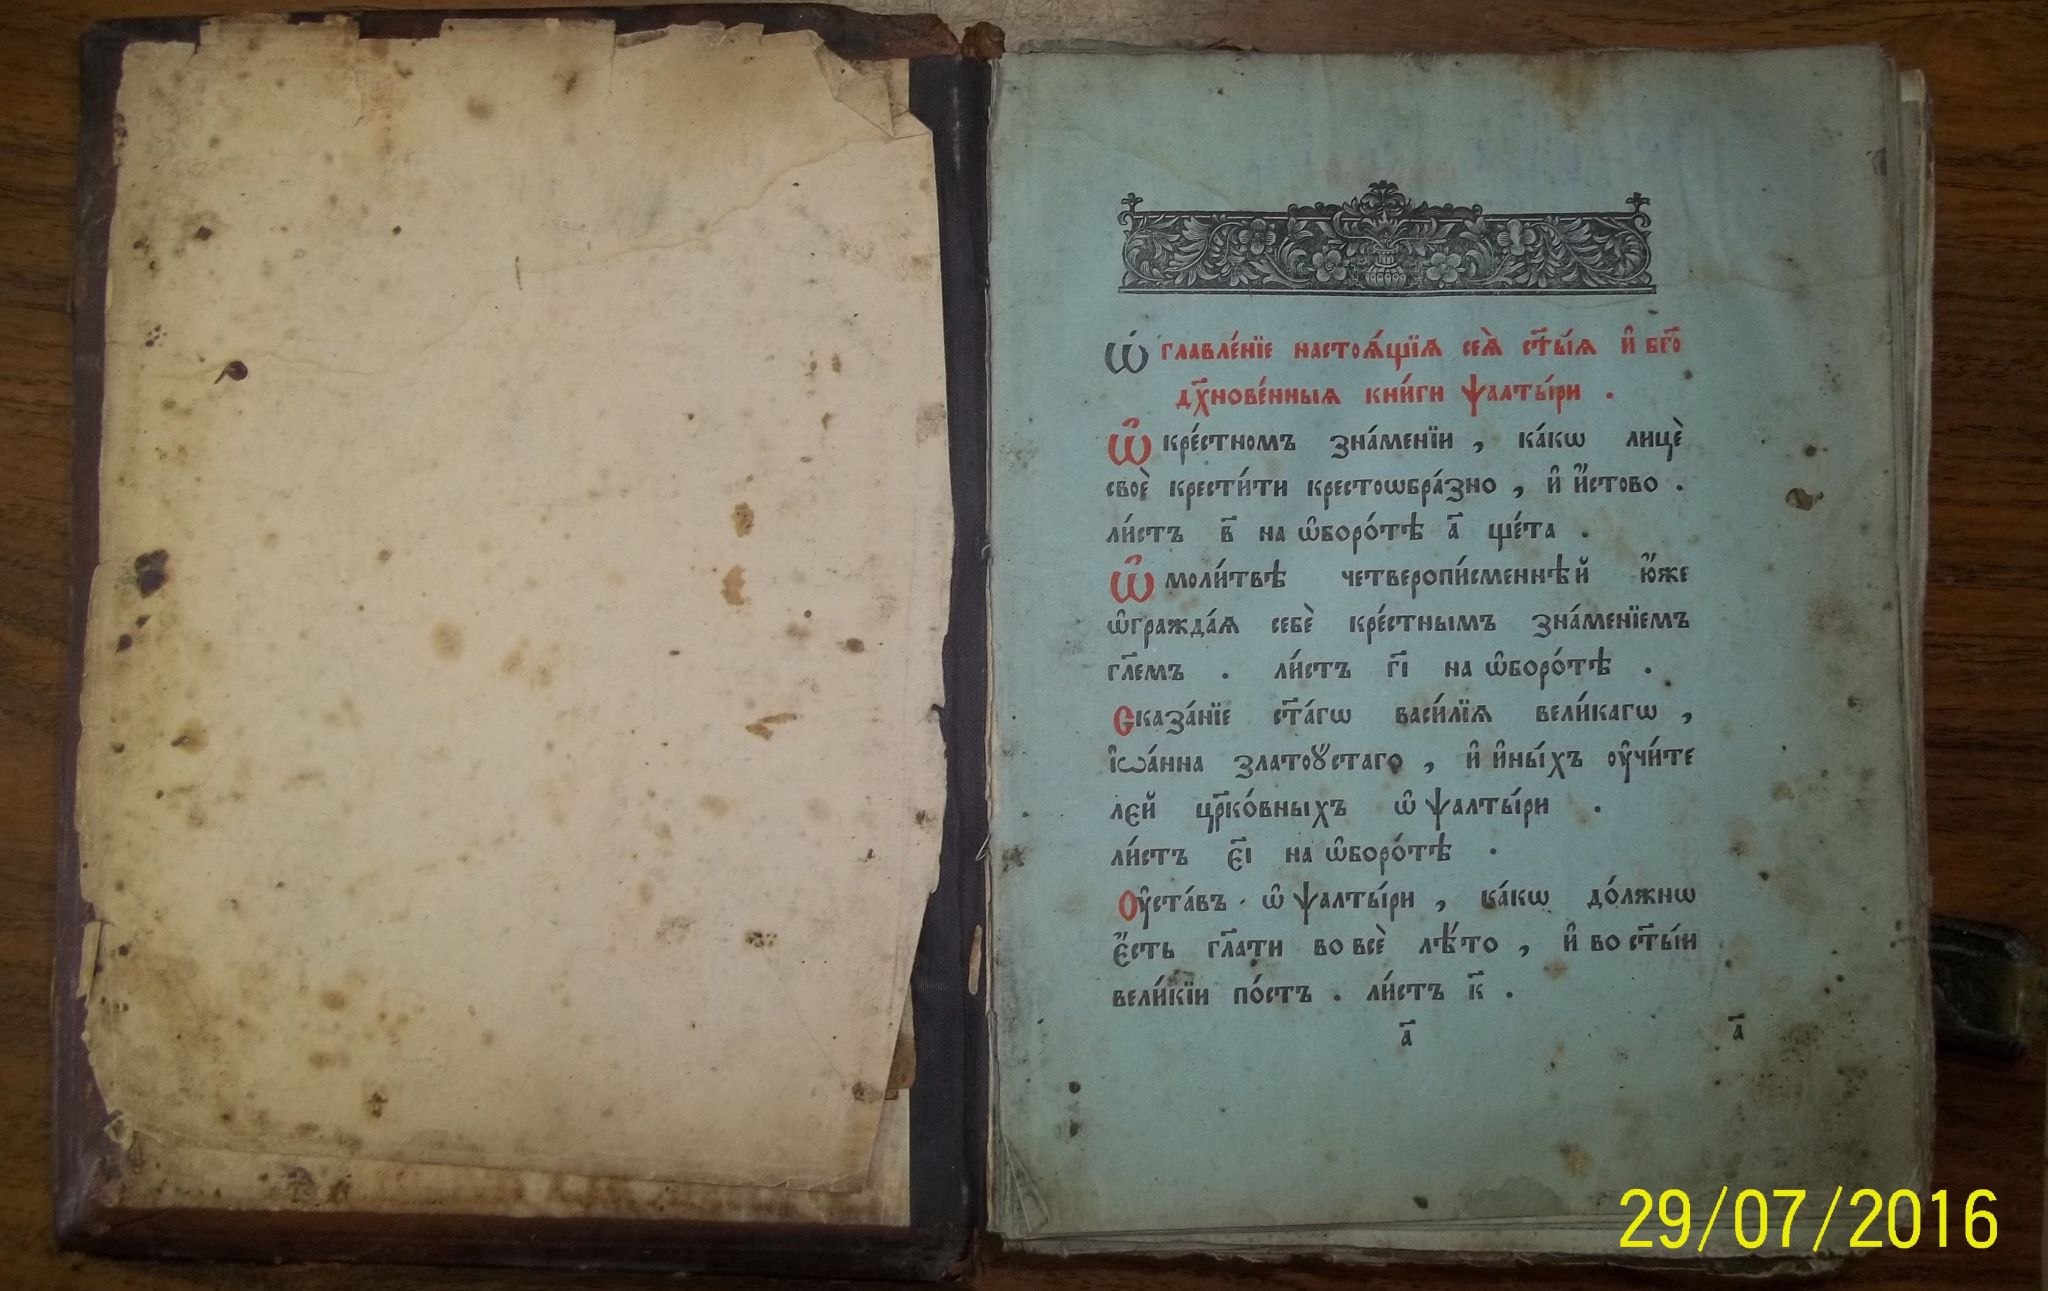 Ѡ҆́главле́нїе настоѧ́щїѧ сеѧ̀ ст҃ы́ѧ и҆ бг҃о
дх҃нове́нныѧ кни́ги ѱалты́ри .
Ѡ҆ кре́стномъ зна́менїи , ка́кѡ лицѐ
своѐ крести́ти крестоѡбра́зно , и҆ и҆́стово .
ли́стъ в҃ на ѡ҆боро́тѣ а҃ ще́та .
Ѡ҆ моли́твѣ четверопи́сменнѣй ю҆́же
ѡ҆гражда́ѧ себѐ кре́стнымъ зна́менїемъ
гл҃емъ . ли́стъ г҃і на ѡ҆боро́тѣ .
Сказа́нїе ст҃а́гѡ васи́лїѧ вели́кагѡ ,
і҆ѡа́нна златоꙋстаго , и҆ и҆ны́хъ ᲂу҆чи́те
лєй цр҃ко́вныхъ ѡ҆ ѱалты́ри .
ли́стъ є҃і на ѡ҆боро́тѣ .
Оу҆ста́въ ѡ҆ ѱалты́ри , ка́кѡ до́лжнѡ
є҆́сть гл҃ати во всѐ лѣ́то , и҆ во ст҃ы́и
вели́кїи по́стъ . ли́стъ к҃ .
а҃ а҃
29/07/2016